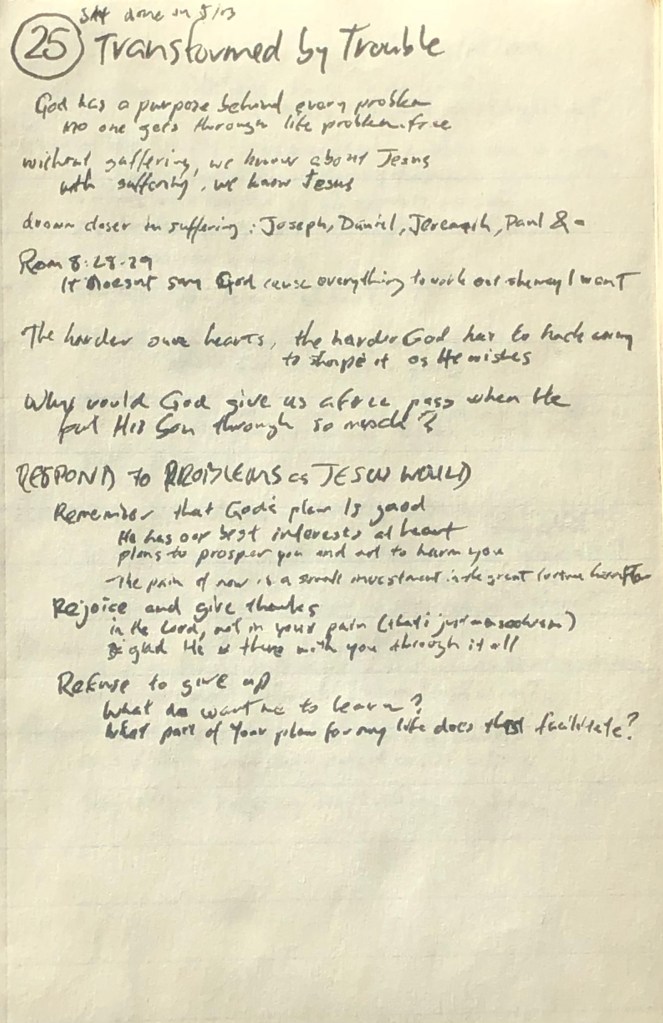 done on 5/03
25 Transformed by Trouble
God has a purpose behind every problem
no one goes through life problem-free
without suffering, we know about Jesus
with suffering, we know Jesus
drawn closer in suffering: Joseph, Daniel, Jeremiah, Paul &
Rom 8:28-29
It doesnt say God cause everything to work out the way I want
The harder our hearts, the harder God has to hack away
to shape it as He wishes
Why would God give us a free pass when He
put His Son through so much?
RESPOND to PROBLEMS as JESUS WOULD
Remember that God's plan is good
He has our best interests at heart
plans to prosper you and not to harm you
- The pain of now is a small investment in the great fortune
Rejoice and give thanks
in the Lord, not in your pain (that's just masochism)
glad He is there with you through it all
Refuse to give up
What do want me to learn?
What part of Your plan for my life does this facilitate?